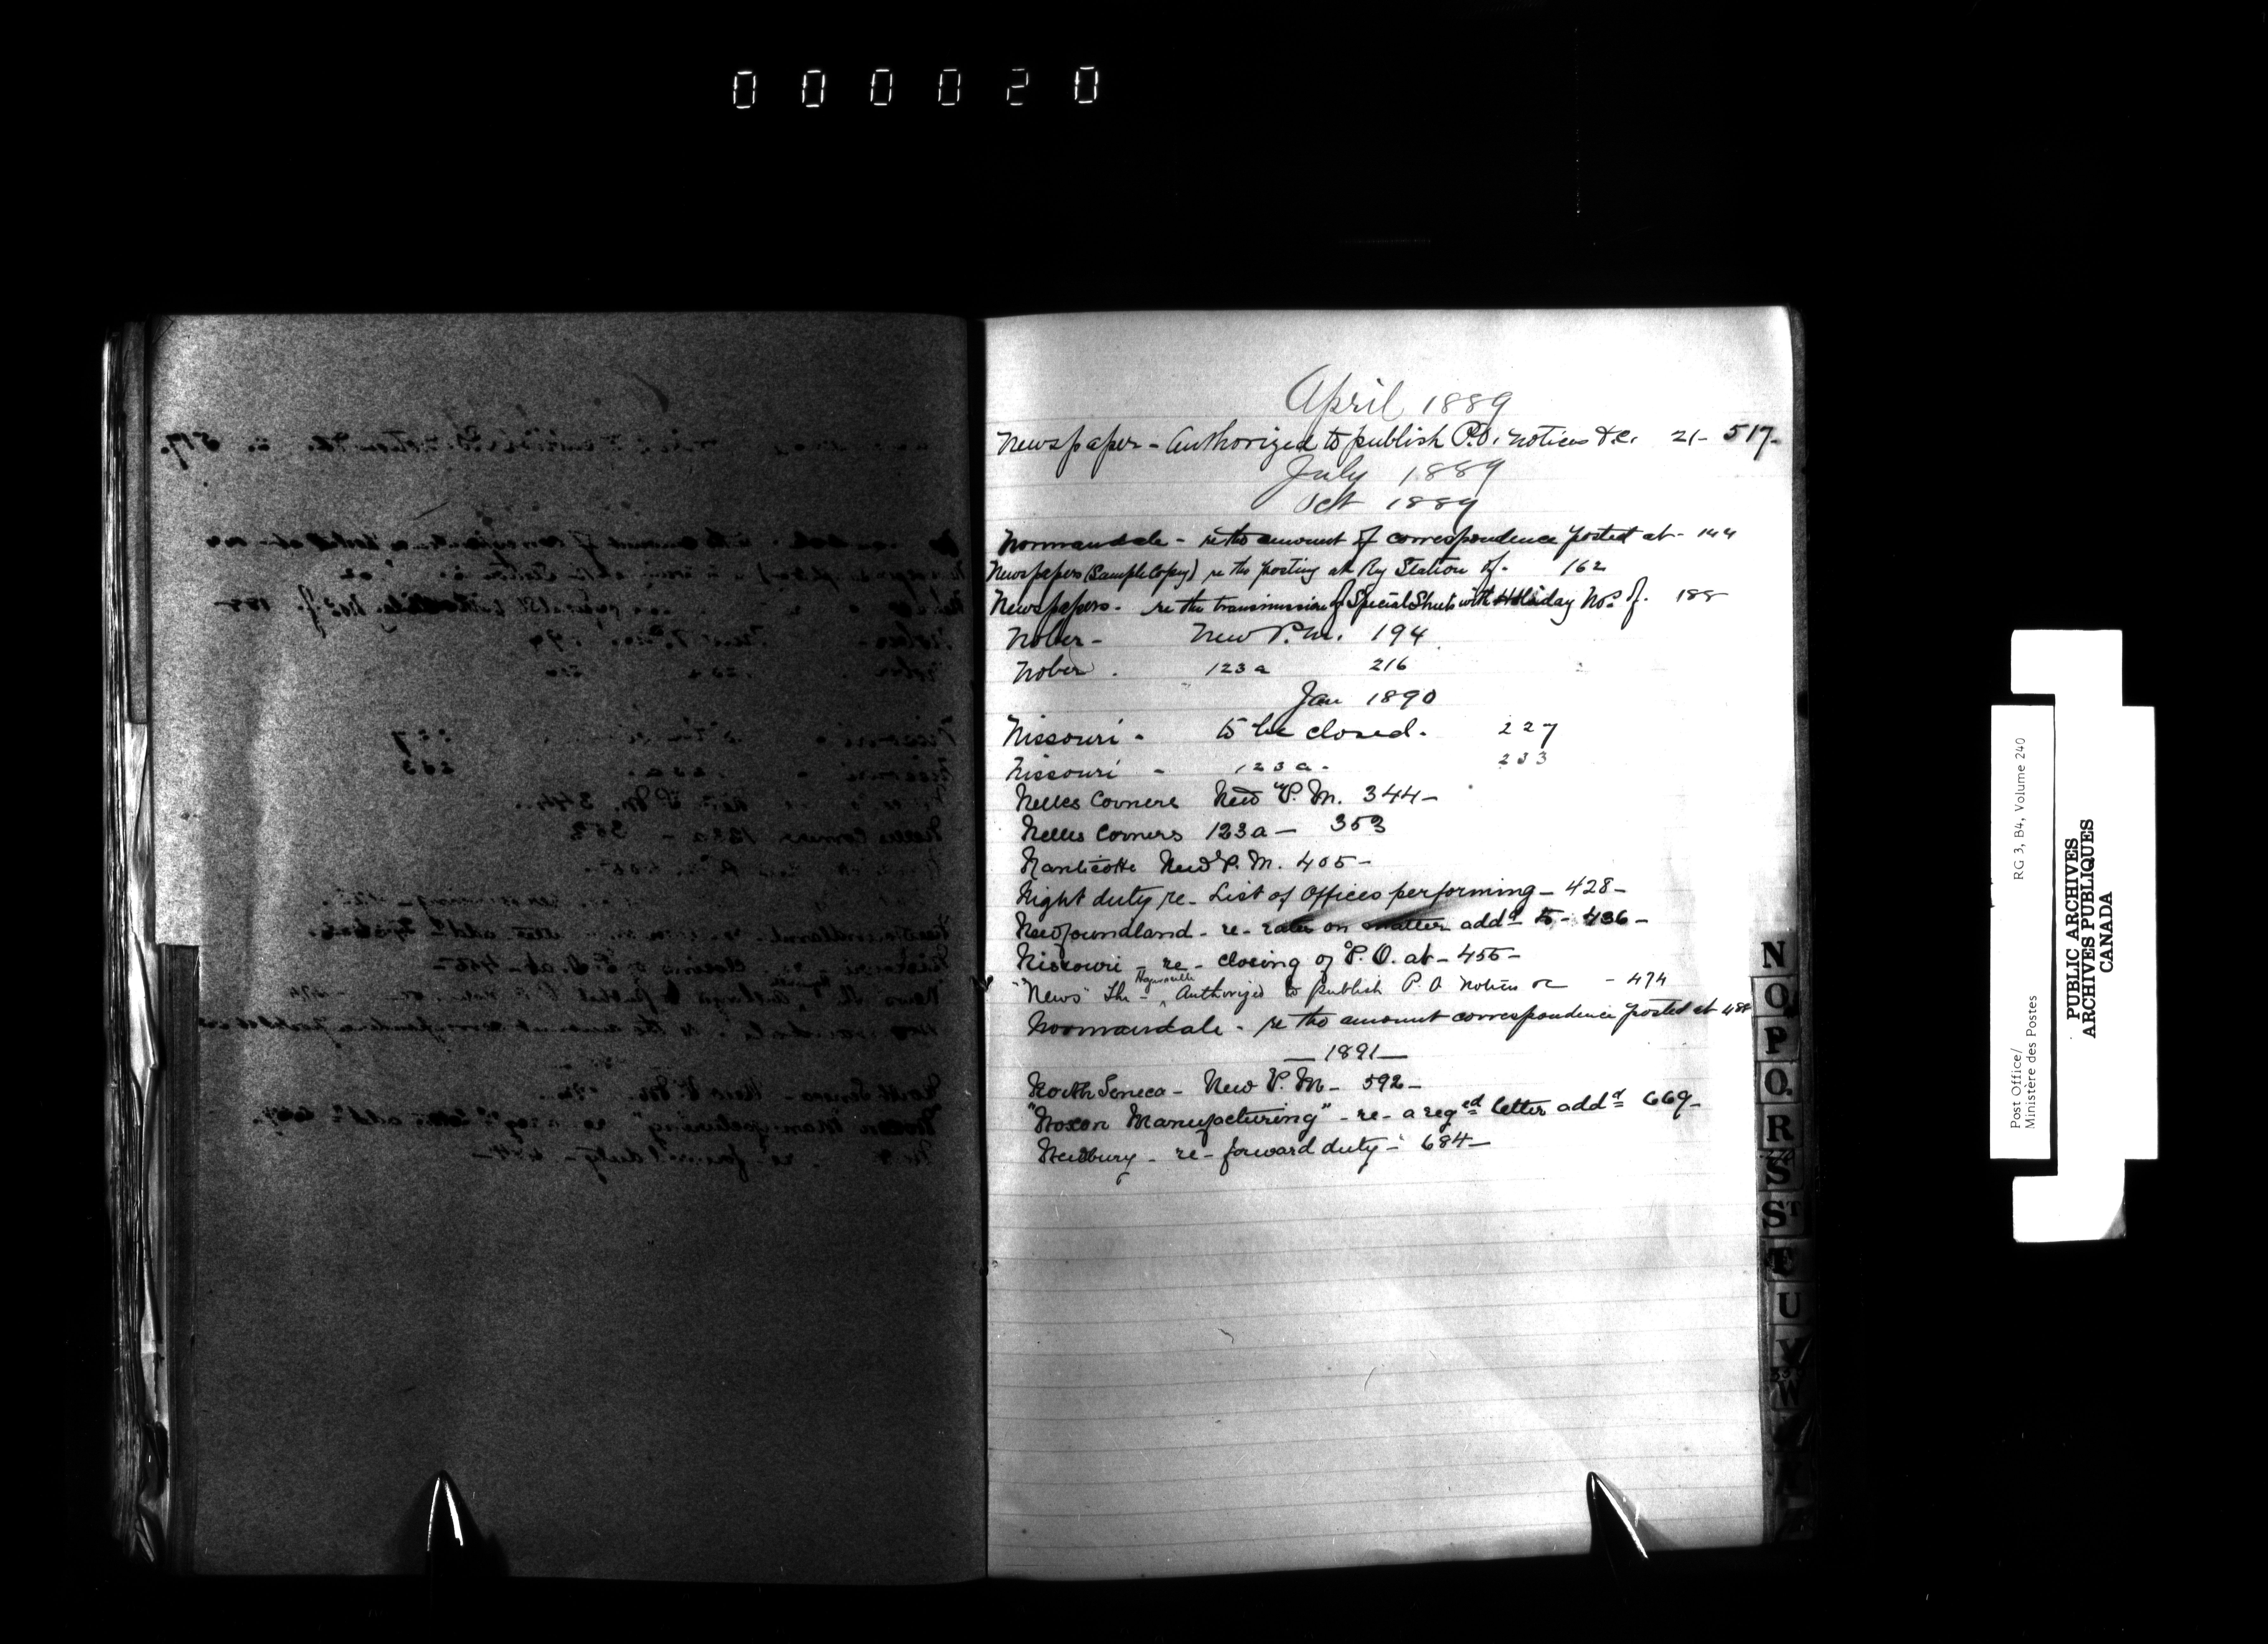 000020
April 1889
Newspaper - Authorized to publish P.O. notices &c. 21- 517-
July 1889
Oct 1889
Normandale - re the amount of correspondence posted at - 144
Newspapers (Sample Copy) re the posting at Ry Station of. 162
Newspapers - re the transmission of Special Sheets with Holiday Nos. of. 188
Nober - New P.M. 194
Nober . 123a 216
Jan 1890
Nissouri - to be closed. 227
Nissouri - 123a - 233
Nelles Corners New P. M. 344-
Nelles Corners 123a - 353
Nanticoke New P. M. 405-
Night duty re - List of Offices performing - 428-
Newfoundland - re - rates on matter addd to - 436-
Nissouri - re - closing of P. O. at - 455-
"News" The - Hagersville Authorized to publish P O notices - 474
Normandale - re the amount correspondence posted at 488
- 1891 -
North Seneca - New P. M - 592-
"Noxon Manufacturing" - re - a reged letter addd 669-
Newbury - re - forward duty - 684-
N
O
P
Q
R
S
ST
T
U
V
W
Post Office/
Ministère des Postes
RG 3, B4, Volume 240
PUBLIC ARCHIVES
ARCHIVES PUBLIQUES
CANADA